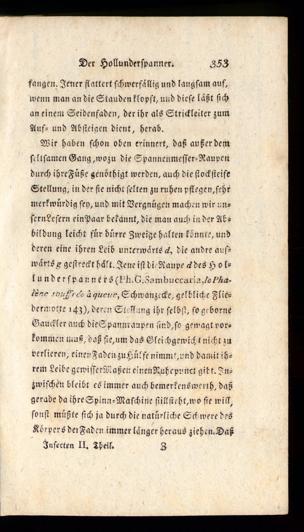 Der Hollunderspanner. 353
fangen. Jener flattert schwerfällig und langsam auf,
wenn man an die Stauden klopft, und diese läßt sich
an einem Seidenfaden, der ihr als Strickleiter zum
Auf- und Absteigen dient, herab.
Wir haben schon oben erinnert, daß außer dem
seltsamen Gang, wozu die Spannenmesser-Raupen
durch ihre Füße genöthigt werden, auch die stocksteife
Stellung, in der sie nicht selten zu ruhen pflegen, sehr
merkwürdig sey, und mit Vergnügen machen wir un-
sern Lesern ein Paar bekannt, die man auch in der Ab-
bildung leicht für dürre Zweige halten könnte, und
deren eine ihren Leib unterwärts d, die andre auf-
wärts g gestreckt hält. Jene ist die Raupe d des Hol-
lunderspanners (Ph. G. Sambuccaria, la Pha-
lène souffrée à queue, Schwanzecke, gelbliche Flie-
dermotte 143), deren Stellung ihr selbst, so geborne
Gauckler auch die Spannraupen sind, so gewagt vor-
kommen muß, daß sie, um das Gleichgewicht nicht zu
verlieren, einen Faden zu Hülfe nimmt, und damit ih-
rem Leibe gewisser Maßen einen Ruhepunct gibt. In-
zwischen bleibt es immer auch bemerkenswerth, daß
gerade da ihre Spinn-Maschine stillsteht, wo sie will,
sonst müßte sich ja durch die natürliche Schwere des
Körpers der Faden immer länger heraus ziehen. Daß
Insecten II. Theil. Z